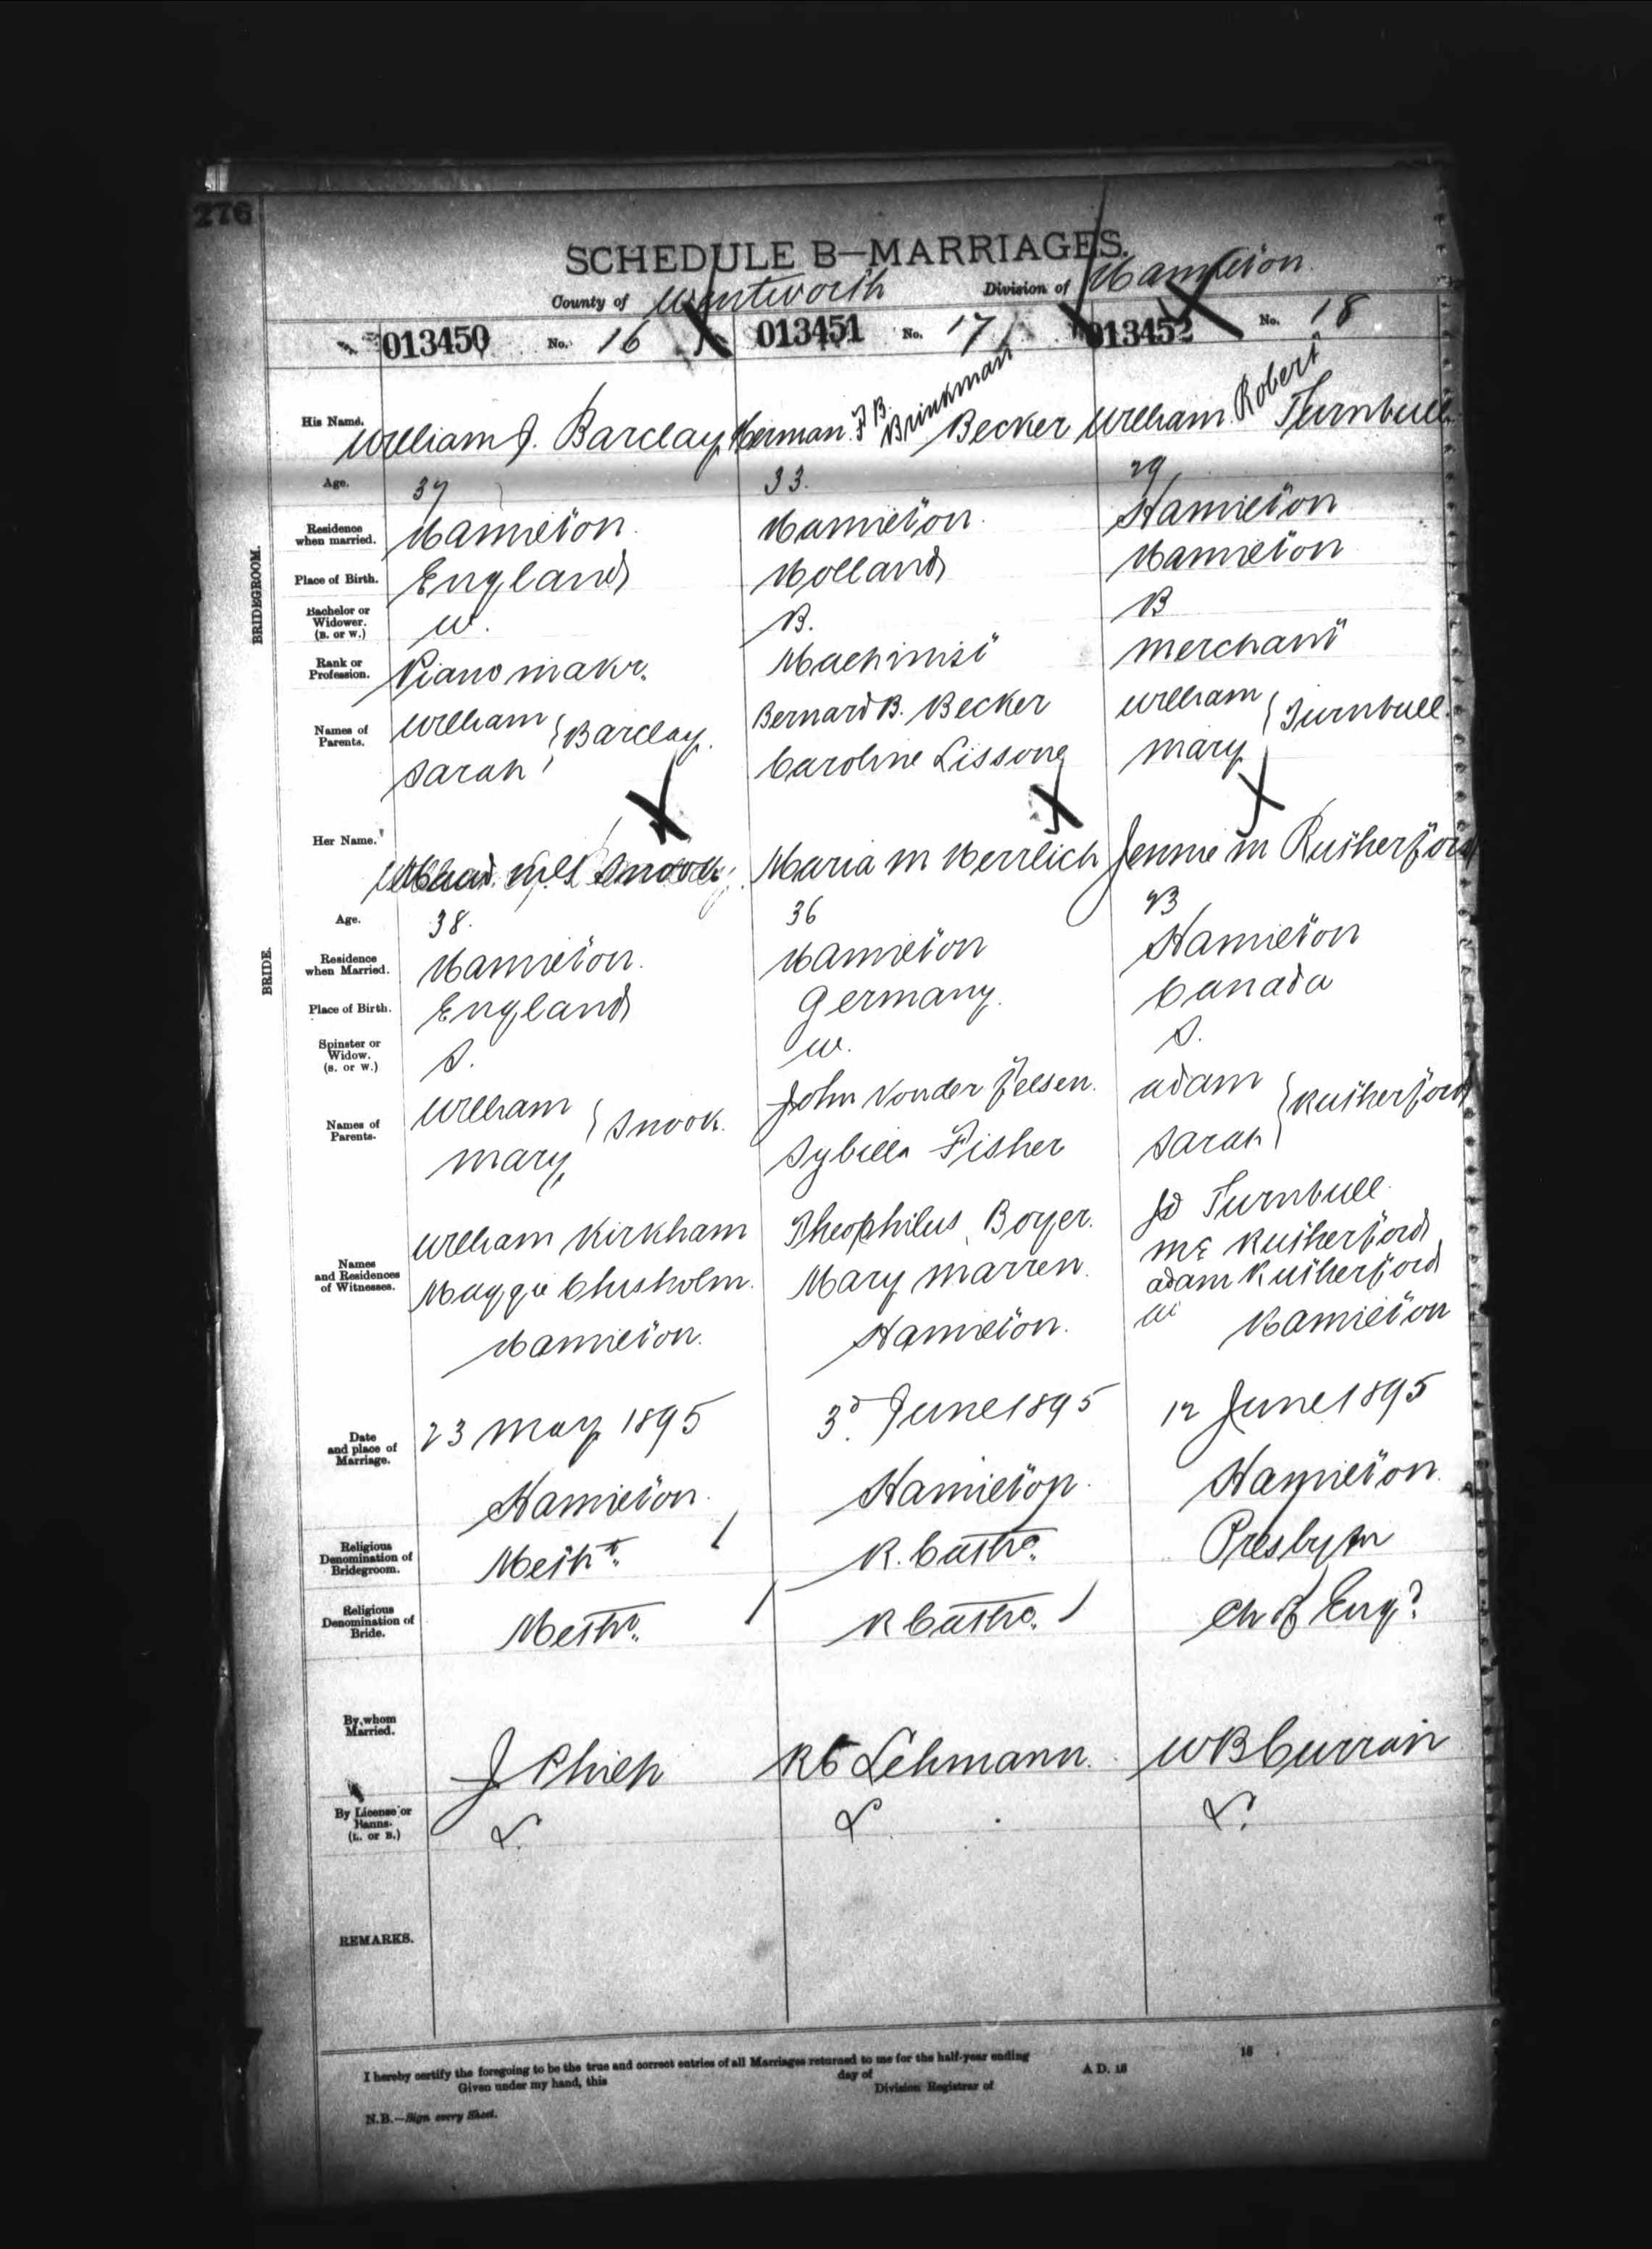 276
SCHEDULE B—MARRIAGES.
County of Wentworth Division of Hamilton
013450 No. 16 013451 No. 17 013452 No. 18
BRIDEGROOM.
His Name. William J. Barclay Herman F B. Brinkman Becker William Robert Turnbull
Age. 37 33. 29
Residence when married. Hamilton. Hamilton. Hamilton
Place of Birth. England Holland Hamilton
Bachelor or Widower. (B. or W.) W. B. B
Rank or Profession. Piano makr. Machinist Merchant
Names of Parents. William } Barclay. Bernard B. Becker William } Turnbull.
Sarah Caroline Lissong Mary
BRIDE.
Her Name. Snook Maria M Herrlich Jennie M Rutherford
Age. 38. 36 23
Residence when Married. Hamilton. Hamilton Hamilton
Place of Birth. England Germany. Canada
Spinster or Widow. (S. or W.) S. W. S.
Names of Parents. William } Snook. John Vonder Felsen. Adam } Rutherford
Mary Sybilla Fisher Sarah
Names and Residences of Witnesses. William Kirkham Theophilus Boyer. Jd Turnbull
Maggie Chisholm. Mary Marren. ME Rutherford
Hamilton. Hamilton. Adam Rutherford
Hamilton
Date and place of Marriage. 23 May 1895 3d June 1895 12 June 1895
Hamilton. Hamilton. Hamilton.
Religious Denomination of Bridegroom. Meth. R. Cathc. Presbytn
Religious Denomination of Bride. Meth. R Cathc. Ch of Engd
By whom Married. J Philp RE Lehmann. WB Curran
By License or Banns. (L. or B.) L. L L.
REMARKS.
I hereby certify the foregoing to be the true and correct entries of all Marriages returned to me for the half-year ending 18
Given under my hand, this day of A D. 18
Division Registrar of
N.B.—Sign every Sheet.